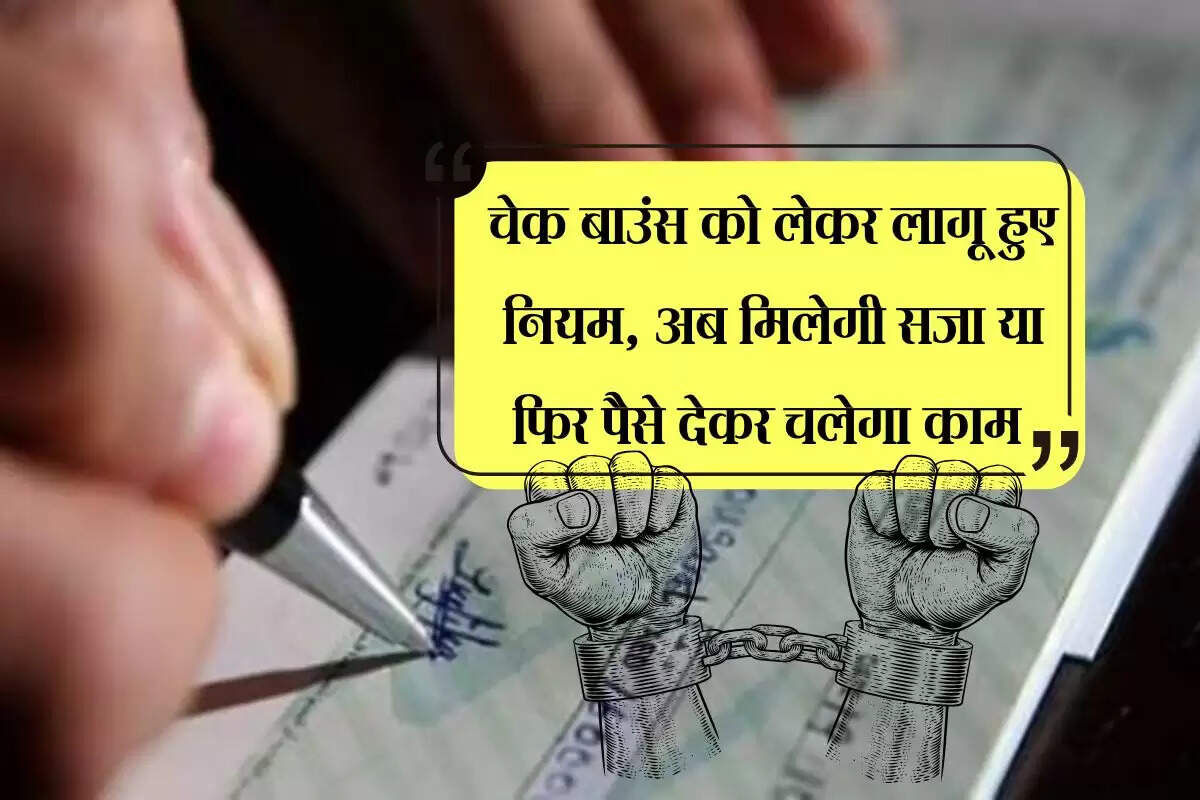 चेक बाउंस को लेकर लागू हुए
नियम, अब मिलेगी सजा या
फिर पैसे देकर चलेगा काम